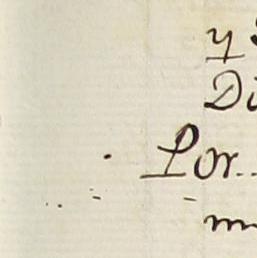 y
Di
Por..
m